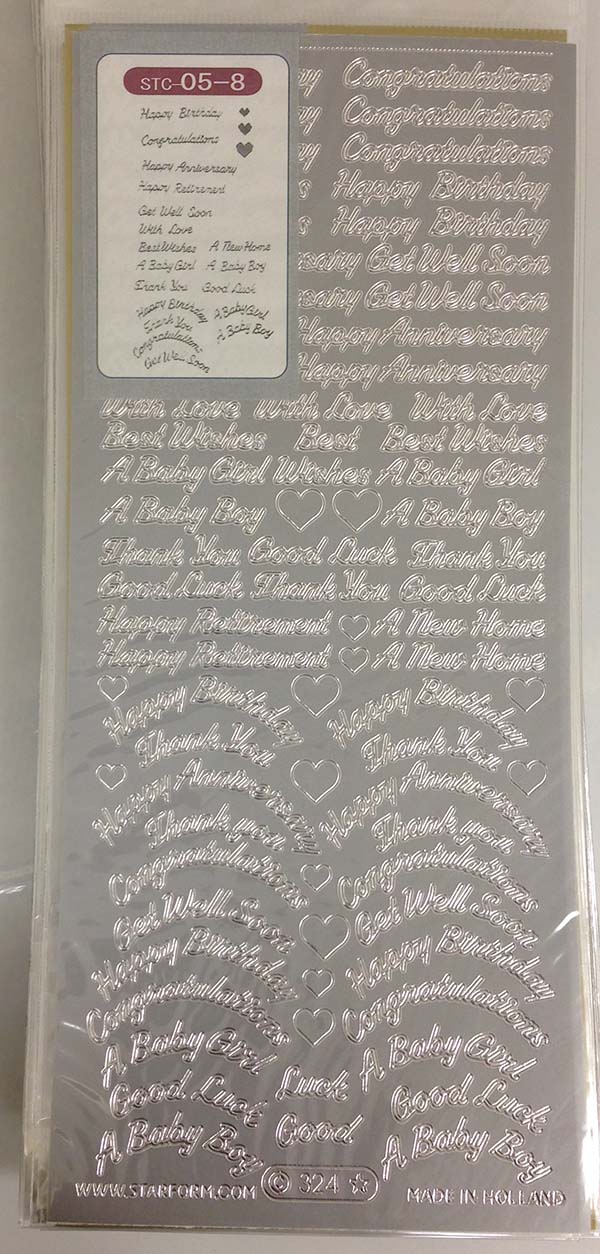 STC-05-8
Happy Birthday
Congratulations
Happy Anniversary
Happy Retirement
Get Well Soon
With Love
Best Wishes A New Home
A Baby Girl A Baby Boy
Thank You Good Luck
Happy Birthday A Baby Girl
Thank You A Baby Boy
Congratulations
Get Well Soon
Congratulations
Congratulations
Congratulations
Happy Birthday
Happy Birthday
Get Well Soon
Get Well Soon
Happy Anniversary
Happy Anniversary
With Love With Love With Love
Best Wishes Best Best Wishes
A Baby Girl Wishes A Baby Girl
A Baby Boy A Baby Boy
Thank You Good Luck Thank You
Good Luck Thank You Good Luck
Happy Retirement A New Home
Happy Retirement A New Home
Happy Birthday Happy Birthday
Thank You Thank You
Happy Anniversary Happy Anniversary
Thank you Thank you
Congratulations Congratulations
Get Well Soon Get Well Soon
Happy Birthday Happy Birthday
Congratulations Congratulations
A Baby Girl A Baby Girl
Good Luck Luck Good Luck
A Baby Boy Good A Baby Boy
WWW.STARFORM.COM © 324 ☆ MADE IN HOLLAND